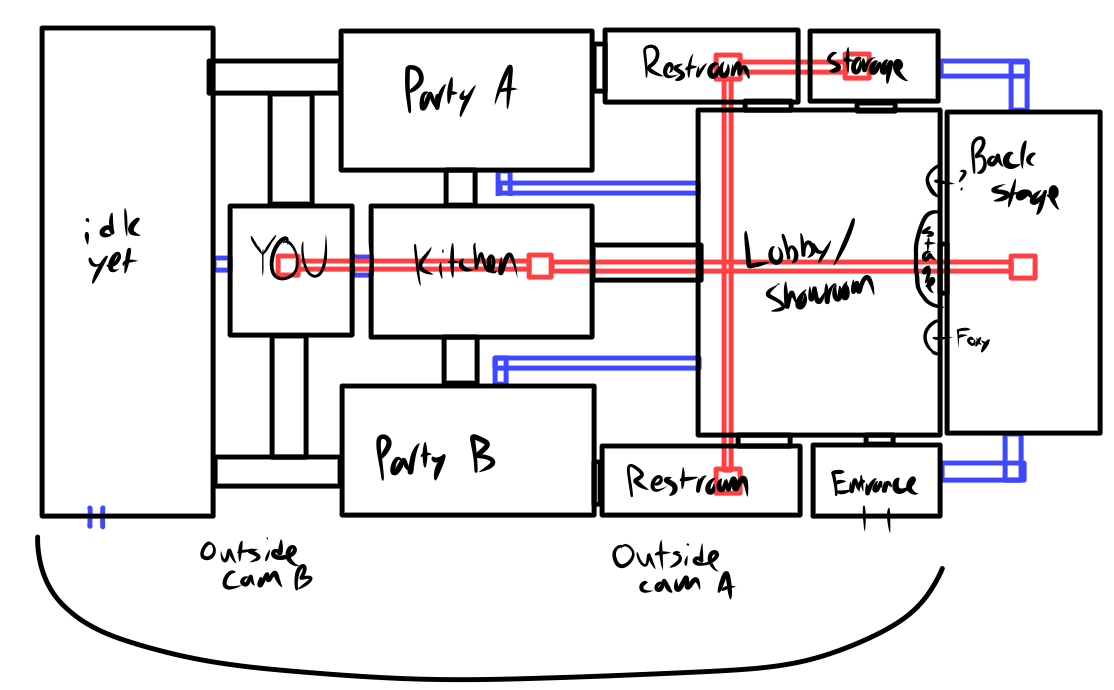 Party A
Restroom
Storage
Back
stage
?
idk
yet
YOU
Kitchen
Lobby/
Showroom
stage
Foxy
Party B
Restroom
Entrance
Outside
cam B
Outside
cam A